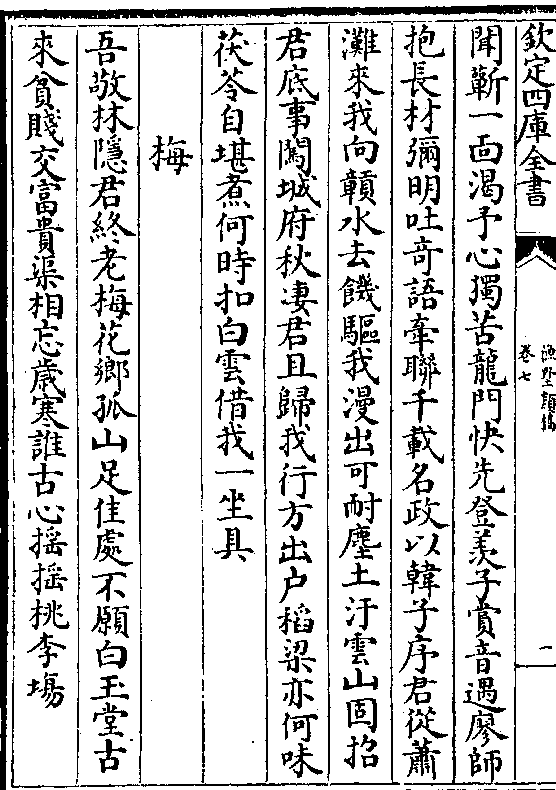 欽定四庫全書
漁墅類稿
卷七
一
聞蘄一面渴予心獨苦龍門快先登羨子賞音遇廖師
抱長材彌明吐竒語牽聯千載名政以韓子序君從蕭
灘來我向贛水去饑驅我漫出可耐塵土汙雲山固招
君底事闖城府秋凄君且歸我行方出户稻粱亦何味
茯苓自堪煮何時扣白雲借我一坐具
梅
吾敬林隱君終老梅花鄉孤山足佳處不願白玉堂古
來貧賤交富貴渠相忘歳寒誰古心揺揺桃李塲